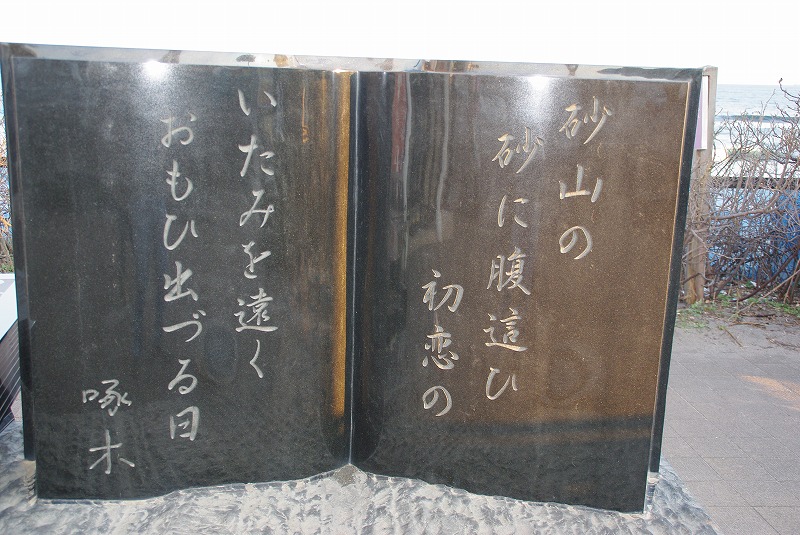 砂山の
砂に腹這ひ
初恋の
いたみを遠く
おもひ出づる日
啄木